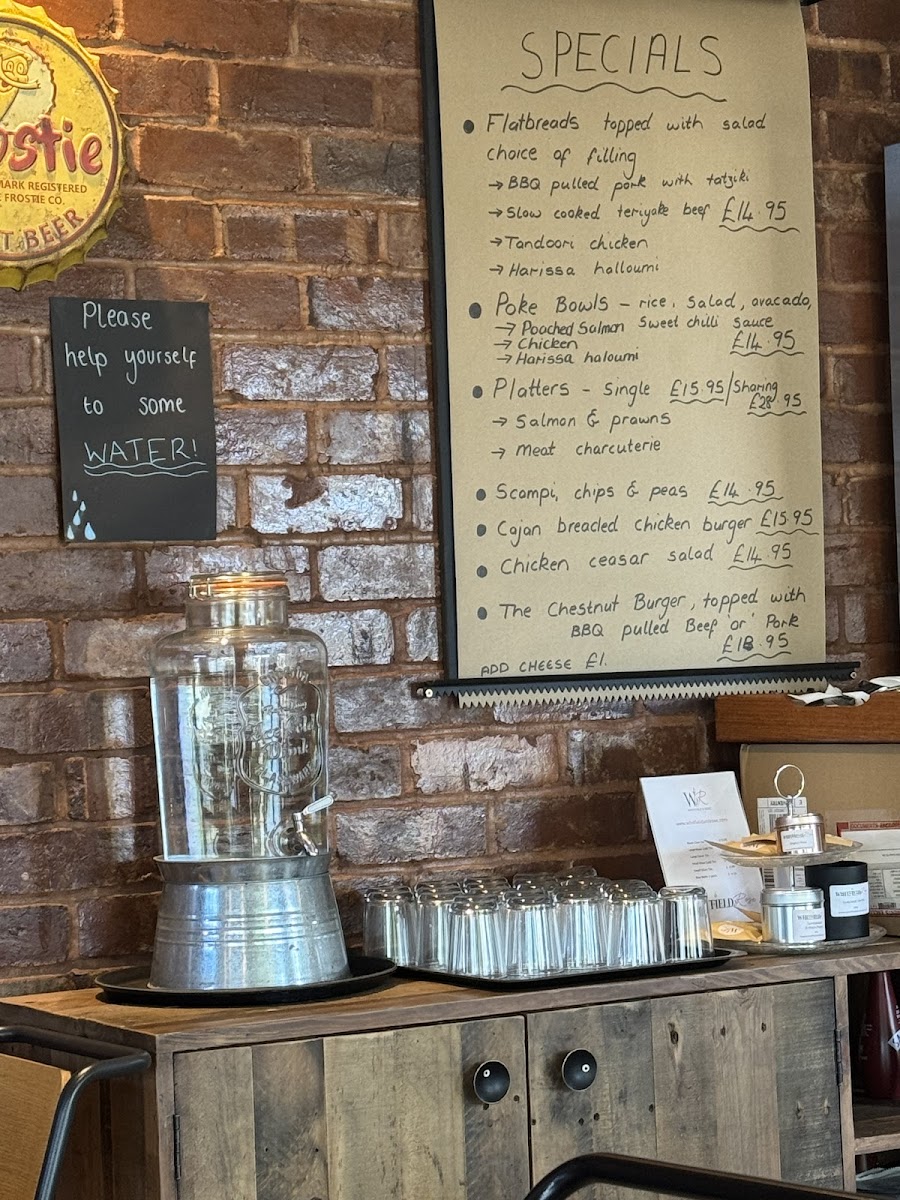 ostie
MARK REGISTERED
FROSTIE CO.
T BEER
Please
help yourself
to some
WATER!
SPECIALS
• Flatbreads topped with salad
choice of filling
→ BBQ pulled pork with tatziki
→ Slow cooked teriyake beef £14.95
→ Tandoori chicken
→ Harissa halloumi
• Poke Bowls - rice, salad, avacado,
→ Poached Salmon Sweet chilli sauce
→ Chicken £14.95
→ Harissa haloumi
• Platters - Single £15.95/Sharing
£28.95
→ Salmon & prawns
→ Meat charcuterie
• Scampi, chips & peas £14.95
• Cajan breaded chicken burger £15.95
• Chicken ceasar salad £14.95
• The Chestnut Burger, topped with
BBQ pulled Beef 'or' Pork
£18.95
ADD CHEESE £1.
FIELD